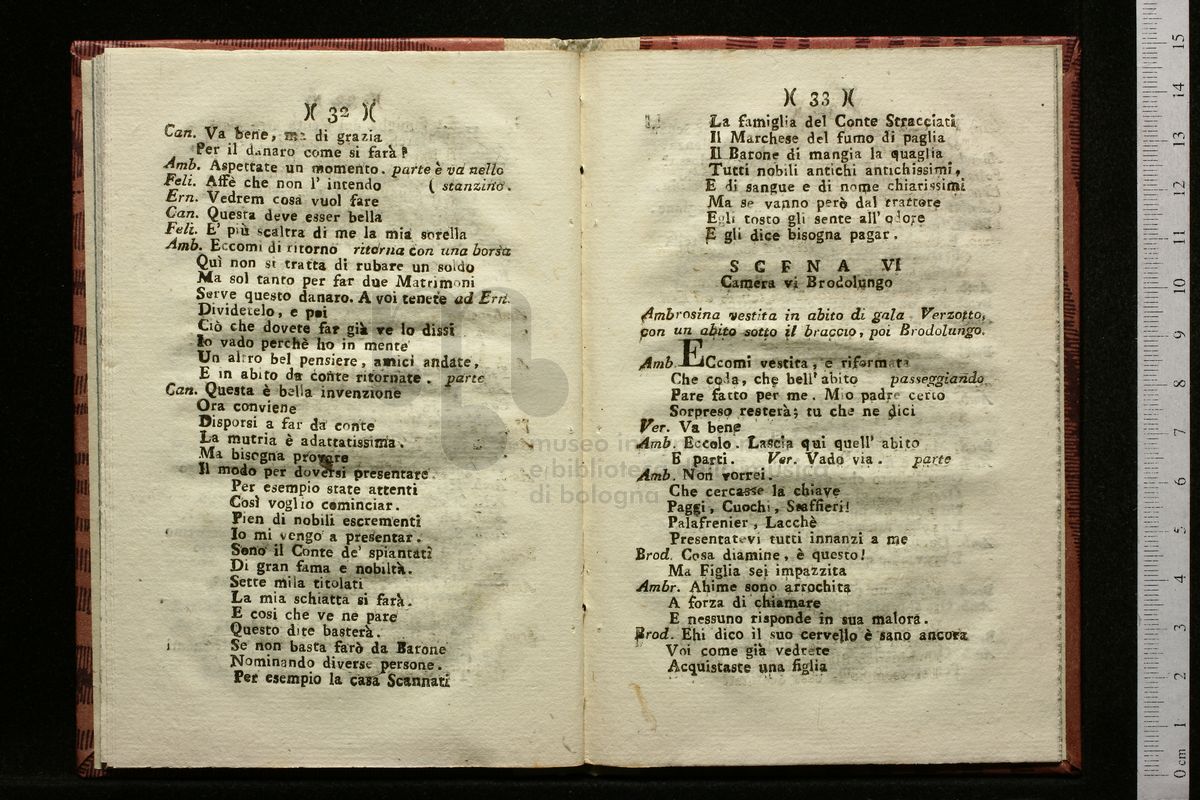 )( 32 )(
Can. Va bene, ma di grazia
Per il danaro come si farà?
Amb. Aspettate un momento. parte è va nello
Feli. Affè che non l' intendo ( stanzino.
Ern. Vedrem cosa vuol fare
Can. Questa deve esser bella
Feli. E' più scaltra di me la mia sorella
Amb. Eccomi di ritorno ritorna con una borsa
Quì non si tratta di rubare un soldo
Ma sol tanto per far due Matrimoni
Serve questo danaro. A voi tenete ad Ern.
Dividetelo, e poi
Ciò che dovete far già ve lo dissi
Io vado perchè ho in mente
Un altro bel pensiere, amici andate,
E in abito da conte ritornate. parte
Can. Questa è bella invenzione
Ora conviene
Disporsi a far da conte
La mutria è adattatissima.
Ma bisogna provare
Il modo per doversi presentare
Per esempio state attenti
Così voglio cominciar.
Pien di nobili escrementi
Io mi vengo a presentar.
Sono il Conte de' spiantati
Di gran fama e nobiltà.
Sette mila titolati
La mia schiatta si farà.
E così che ve ne pare
Questo dite basterà.
Se non basta farò da Barone
Nominando diverse persone.
Per esempio la casa Scannati
)( 33 )(
La famiglia del Conte Stracciati
Il Marchese del fumo di paglia
Il Barone di mangia la quaglia
Tutti nobili antichi antichissimi,
E di sangue e di nome chiarissimi
Ma se vanno però dal trattore
Egli tosto gli sente all' odore
E gli dice bisogna pagar.
SCENA VI
Camera vi Brodolungo
Ambrosina vestita in abito di gala. Verzotto,
con un abito sotto il braccio, poi Brodolungo.
Amb. ECcomi vestita, e riformata
Che coda, che bell' abito passeggiando
Pare fatto per me. Mio padre certo
Sorpreso resterà; tu che ne dici
Ver. Va bene
Amb. Eccolo. Lascia qui quell' abito
E parti. Ver. Vado via. parte
Amb. Non vorrei.
Che cercasse la chiave
Paggi, Cuochi, Staffieri!
Palafrenier, Lacchè
Presentatevi tutti innanzi a me
Brod. Cosa diamine, è questo!
Ma Figlia sei impazzita
Ambr. Ahime sono arrochita
A forza di chiamare
E nessuno risponde in sua malora.
Brod. Ehi dico il suo cervello è sano ancora
Voi come già vedrete
Acquistaste una figlia
museo
e biblioteca musica
di bologna
15
14
13
12
11
10
9
8
7
6
5
4
3
2
1
0 cm